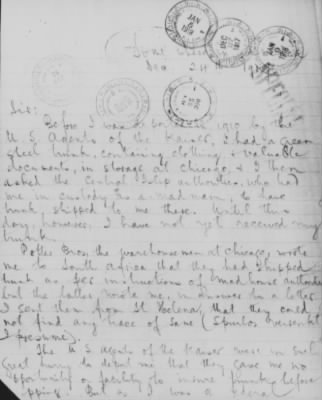 Dec 24th
Sir:
Before I was in 1910 by the
U.S. agents of the Kaiser, I had a green
steel trunk, containing clothing & valuable
documents, in storage at Chicago, & I then
asked the Central Islip authorities, who had
me in custody as a mad man, to have
trunk shipped to me there. Until this
day, however, I have not yet received my
trunk.
Bros, the warehouse men at Chicago, wrote
me to South Africa that they had shipped
trunk as per instructions of madhouse authorities
but the latter wrote me, in answer to a letter
I sent them from St Helena, that they could
not find any trace of same (
I presume).
The U S agents of the Kaiser were in such
great hurry to deport me that they gave me no
opportunity or facility to insure trunk before
shipping. But as I was a